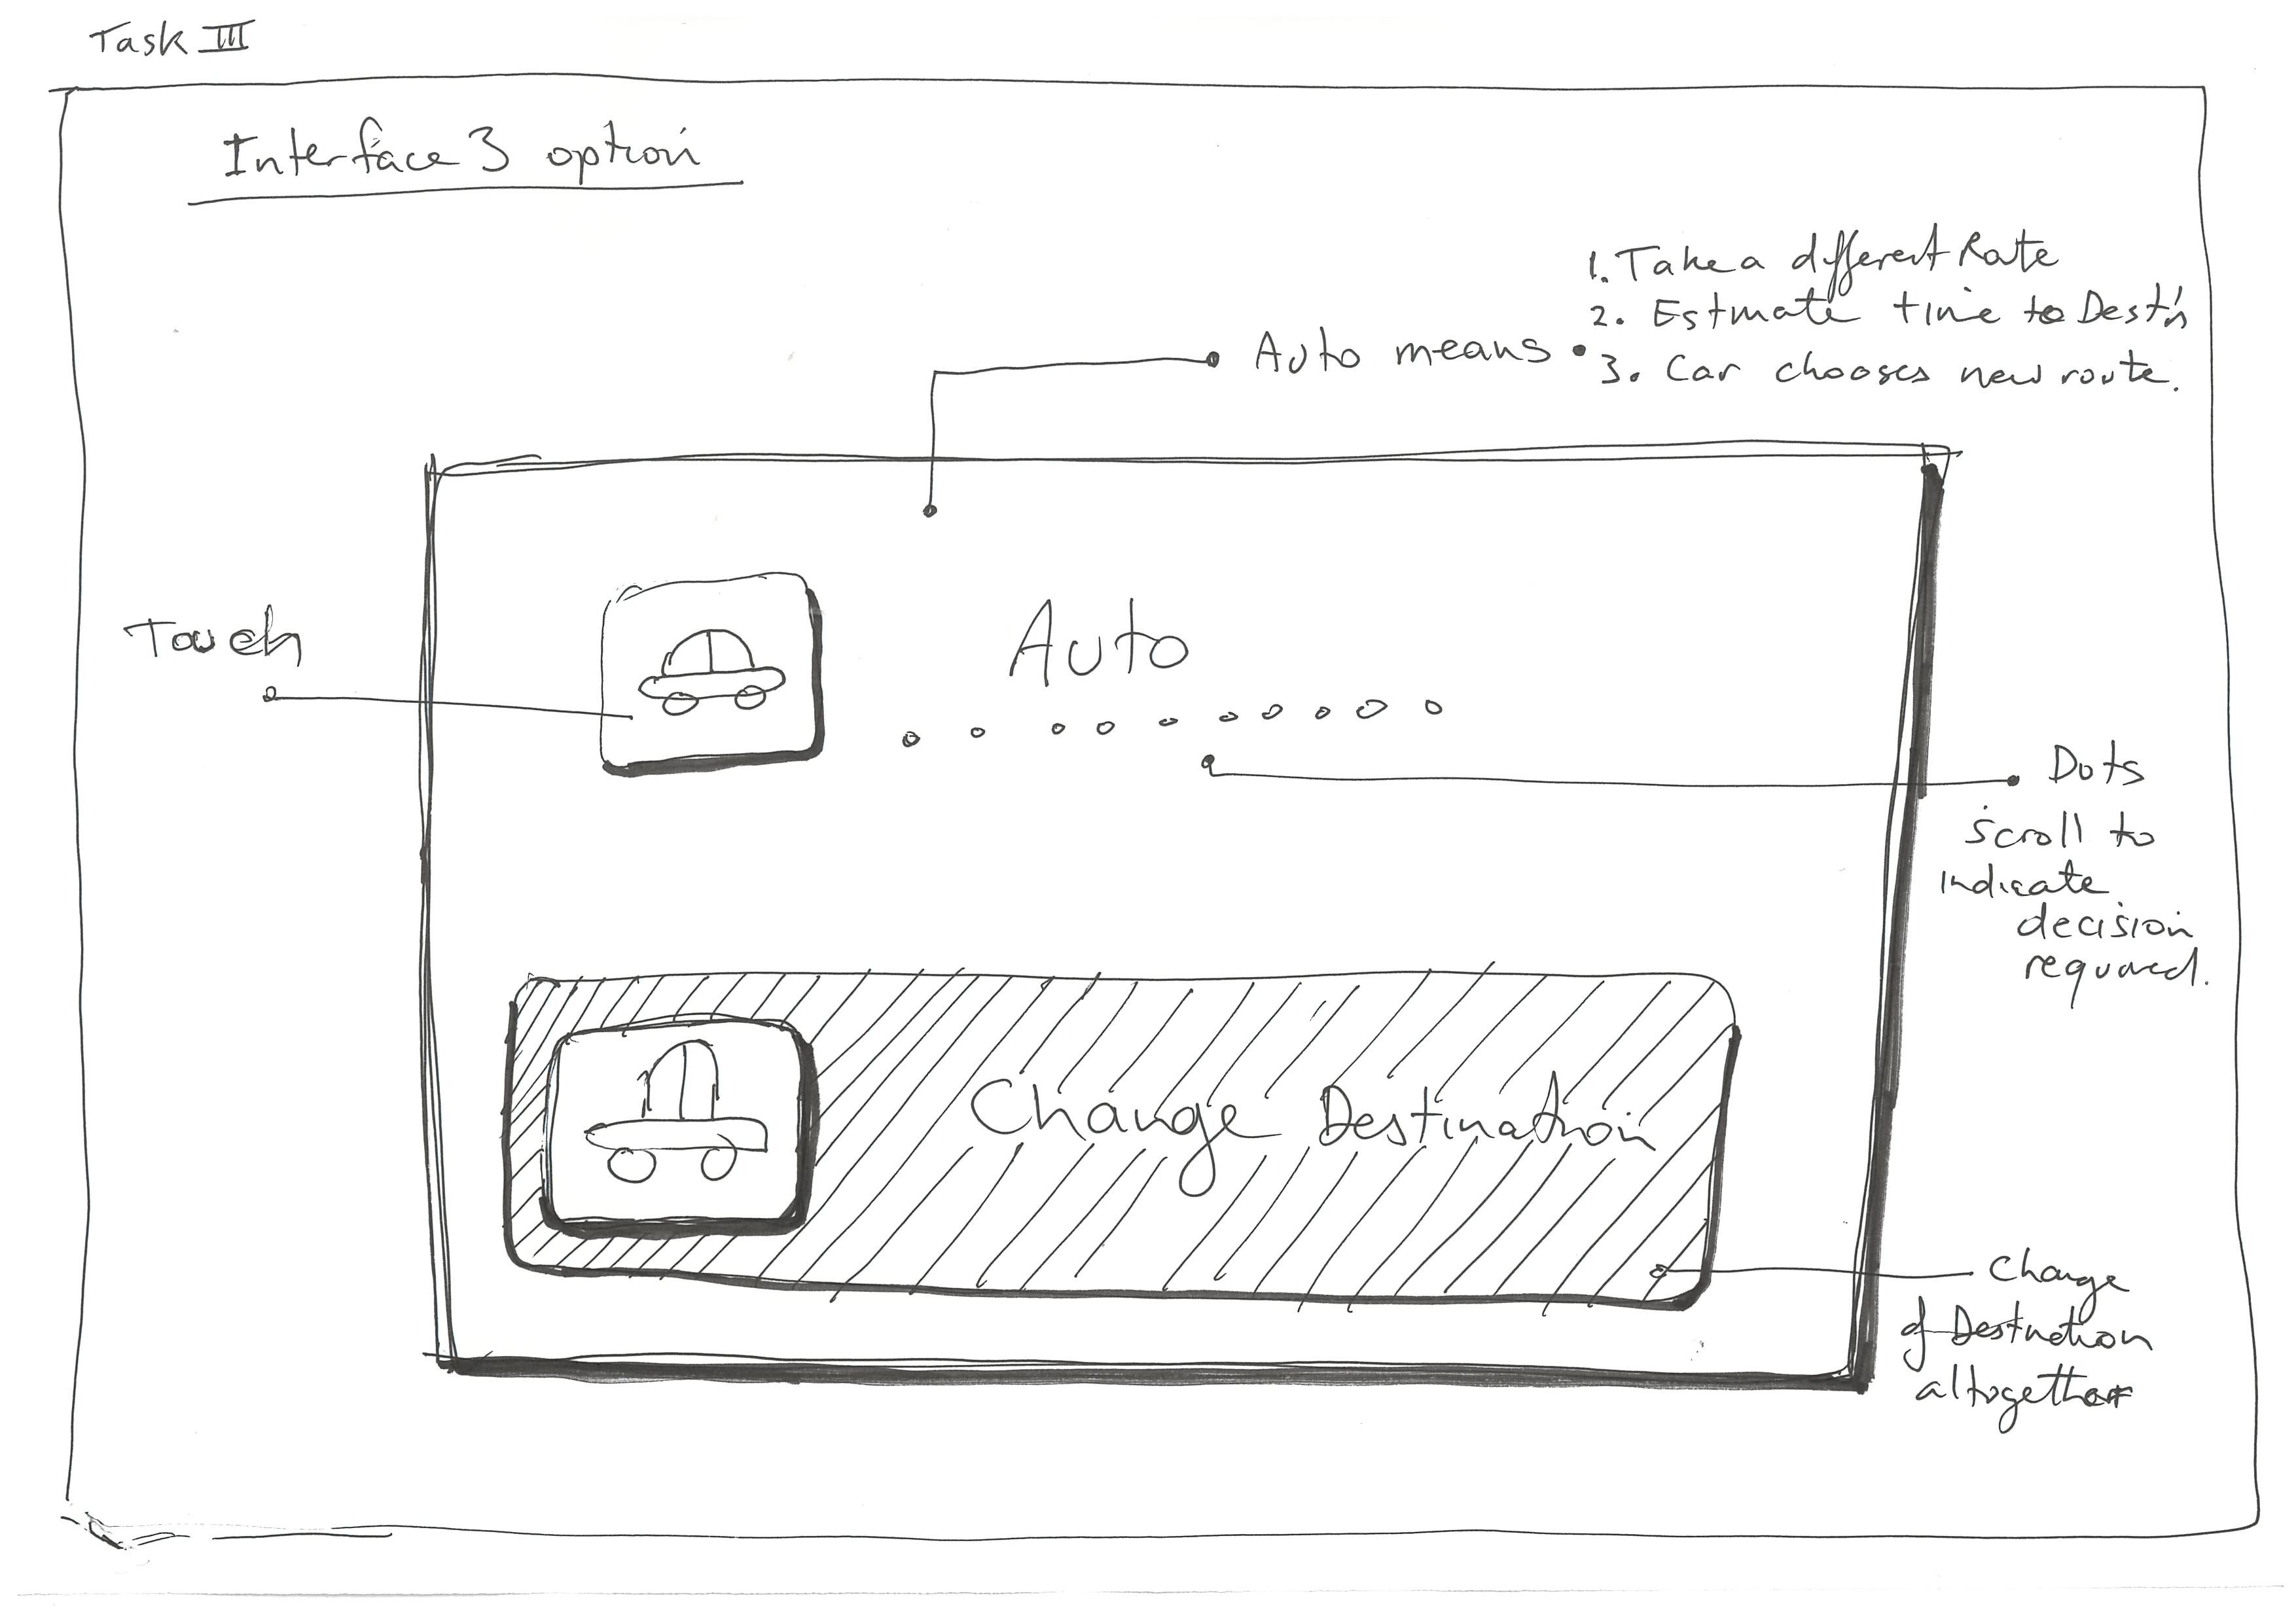 Task III
Interface 3 option
1. Take a different Route
2. Estmate time to Dest'n
Auto means •
3. Car chooses new route.
Touch
Auto
Dots
scroll to
indicate
decision
required.
Change Destination
Change
of Destination
altogether